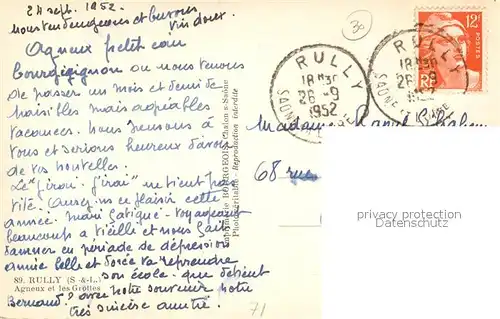 24 sept. 1952.
nous vendangeons et buvons
vin doux.
Agneux petit coin
bourguignon où nous venons
de passer un mois et demi de
paisibles mais agréables
vacances. Nous pensons à
vous et serions heureux d'avoir
de vos nouvelles.
Le "j'irai - j'irai" ne tient pas
vite.
cette
année. mari fatigué. voyageant
beaucoup a vieilli et nous fait
en période de dépression
année belle et dorée va reprendre
son école. que devient
Bernard? avec notre souvenir notre
très sincère amitié.
89. RULLY (S.-&-L.)
Agneux et les Grottes
Imprimerie BOURGEOIS, Chalon s-Saône
Photo véritable Reproduction interdite
38
RULLY
18 H 30
26 -9
1952
SAÔNE ET LOIRE
RULLY
18 H 30
26 -9
1952
12F
POSTES
RF
Madame
68 rue
privacy protection
Datenschutz
71